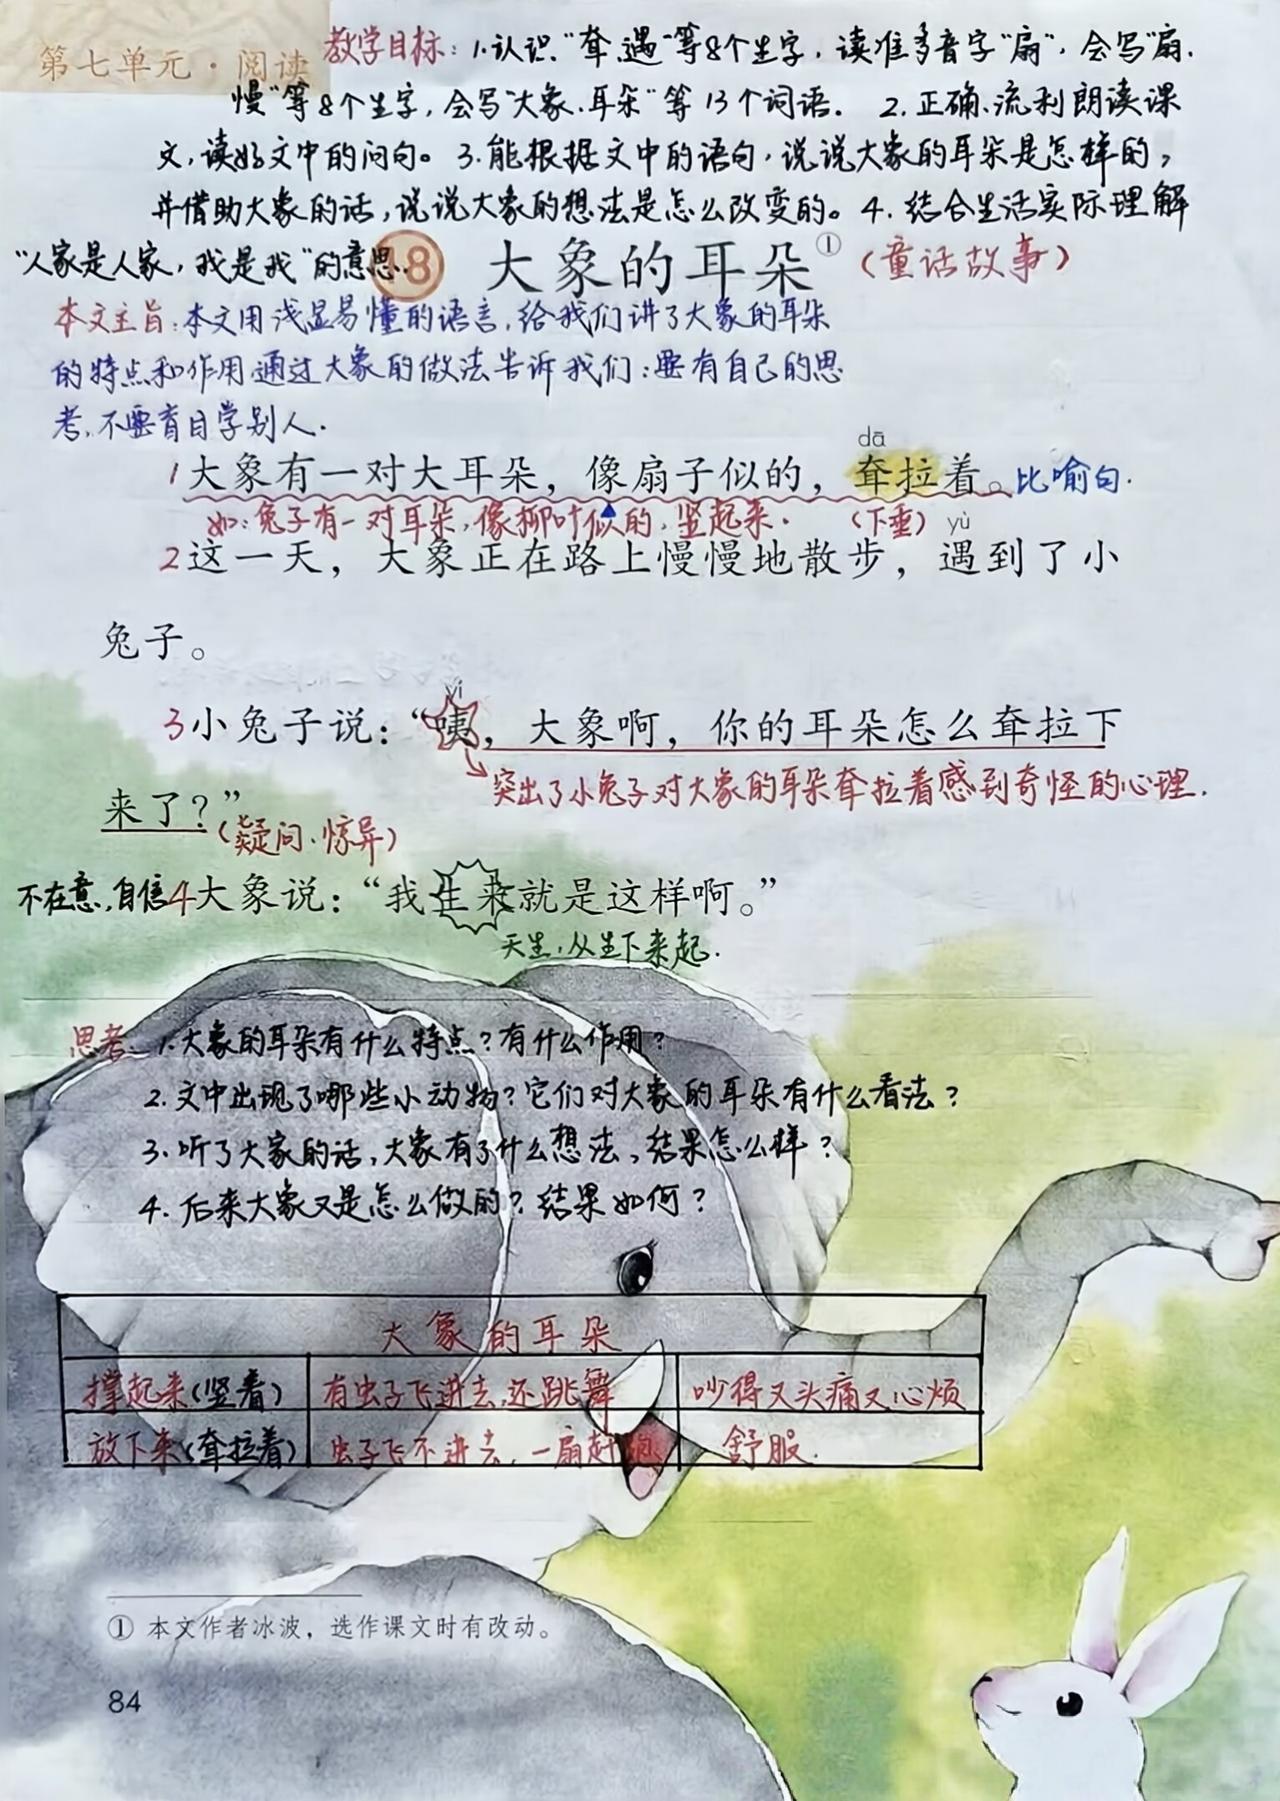 第七单元·阅读
教学目标：1.认识“耷、遇”等8个生字，读准多音字“扇”，会写“扇、
慢”等8个生字，会写“大象、耳朵”等13个词语。 2.正确、流利朗读课
文，读好文中的问句。3.能根据文中的语句，说说大象的耳朵是怎样的，
并借助大象的话，说说大象的想法是怎么改变的。4.结合生活实际理解
“人家是人家，我是我”的意思.
大象的耳朵① （童话故事）
本文主旨：本文用浅显易懂的语言，给我们讲了大象的耳朵
的特点和作用.通过大象的做法告诉我们：要有自己的思
考，不要盲目学别人.
dā
1大象有一对大耳朵，像扇子似的，耷拉着。比喻句.
如：兔子有一对耳朵，像柳叶似的，竖起来. （下垂） yù
2这一天，大象正在路上慢慢地散步，遇到了小
兔子。
yí
3小兔子说：“咦，大象啊，你的耳朵怎么耷拉下
突出了小兔子对大象的耳朵耷拉着感到奇怪的心理.
来了？”
（疑问、惊异）
不在意，自信4大象说：“我生来就是这样啊。”
天生，从生下来起.
思考 1.大象的耳朵有什么特点？有什么作用？
2.文中出现了哪些小动物？它们对大象的耳朵有什么看法？
3.听了大家的话，大象有了什么想法，结果怎么样？
4.后来大象又是怎么做的？结果如何？
大象的耳朵
撑起来（竖着） 有虫子飞进去，还跳舞 吵得又头痛又心烦
放下来（耷拉着） 虫子飞不进去，一扇赶跑 舒服.
① 本文作者冰波，选作课文时有改动。
84